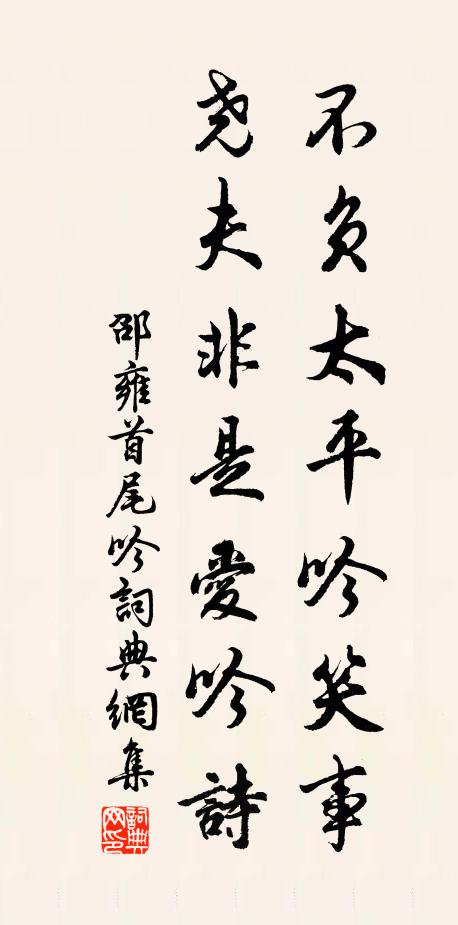 不負太平吟笑事
尧夫非是愛吟詩
邵雍首尾吟詞典網集
詞典网印